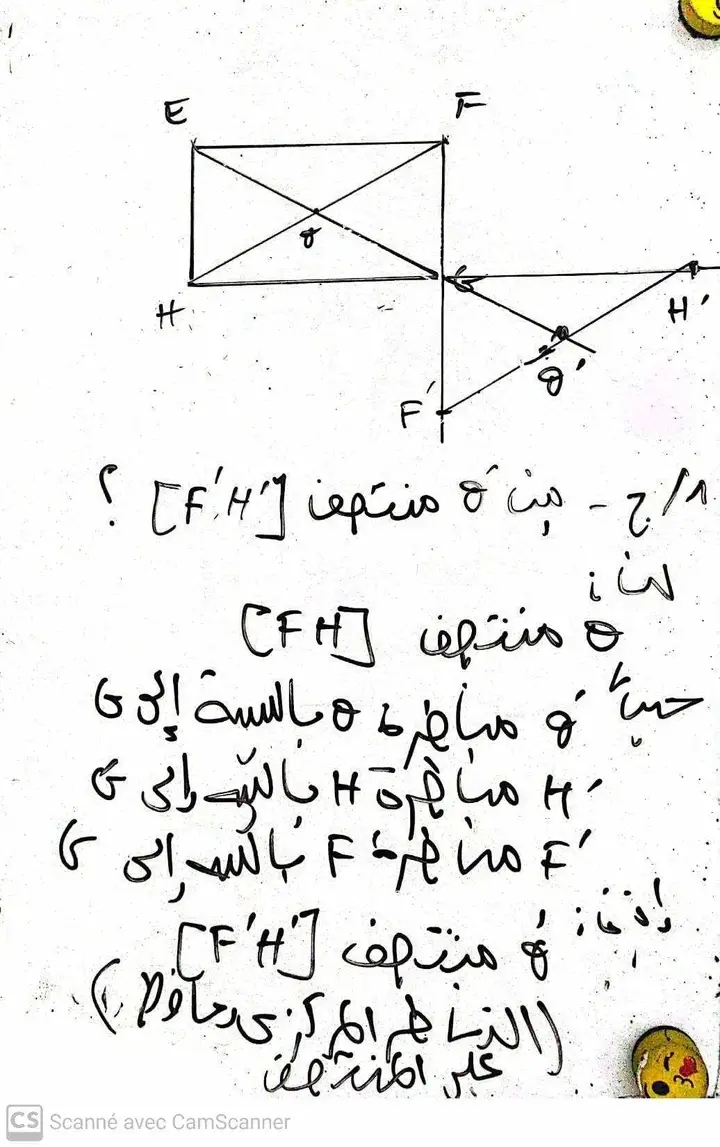 E
F
O
H
G
H'
O'
F'
1/ج - بين O' منتصف [F'H'] ؟
لنا :
O منتصف [FH]
حيث O' مناظرة O بالنسبة إلى G
H' مناظرة H بالنسبة إلى G
F' مناظرة F بالنسبة إلى G
إذن : O' منتصف [F'H']
(التناظر المركزي يحافظ)
على المنتصف
CS Scanné avec CamScanner